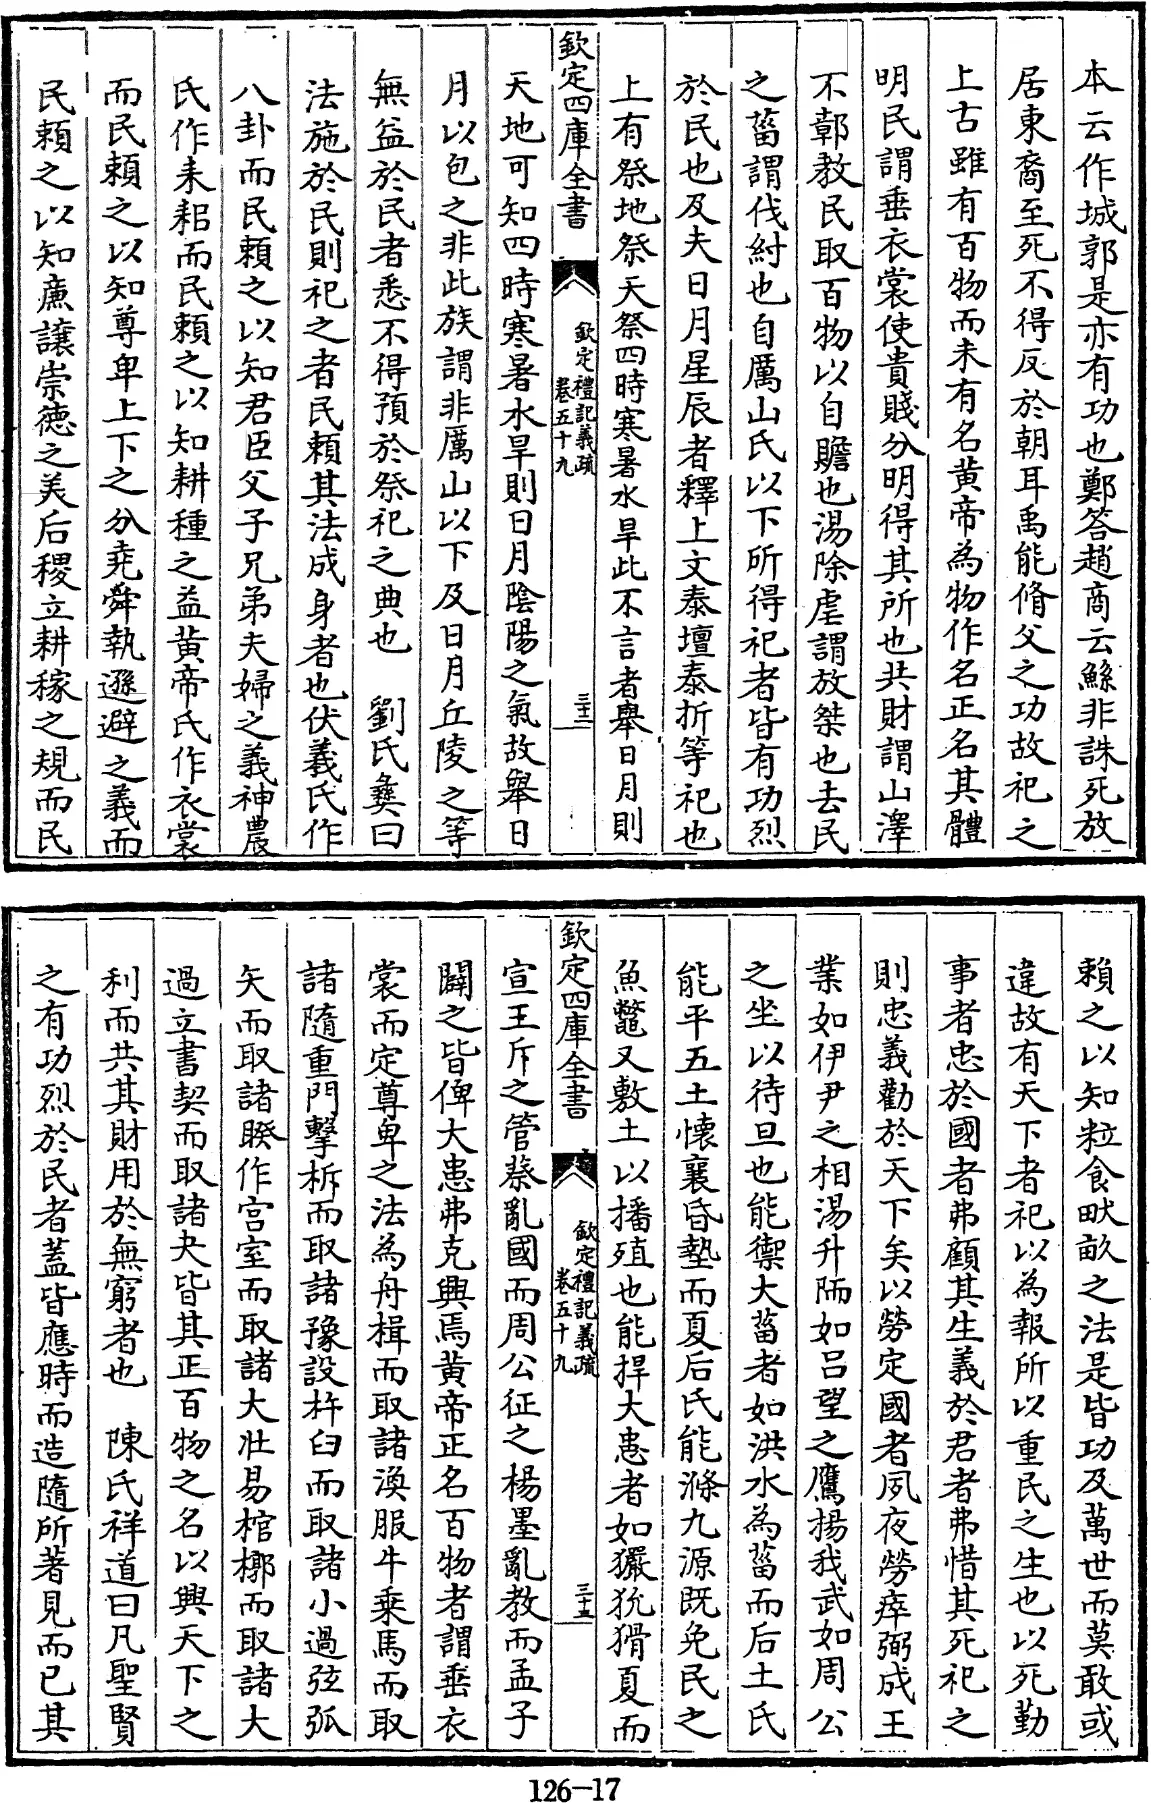 本云作城郭是亦有功也鄭答趙商云鯀非誅死放
居東裔至死不得反於朝耳禹能脩父之功故祀之
上古雖有百物而未有名黄帝為物作名正名其體
明民謂垂衣裳使貴賤分明得其所也共財謂山澤
不鄣教民取百物以自贍也湯除虐謂放桀也去民
之菑謂伐紂也自厲山氏以下所得祀者皆有功烈
於民也及夫日月星辰者釋上文泰壇泰折等祀也
上有祭地祭天祭四時寒暑水旱此不言者舉日月則
欽定四庫全書
欽定禮記義疏
卷五十九
三十三
天地可知四時寒暑水旱則日月陰陽之氣故舉日
月以包之非此族謂非厲山以下及日月丘陵之等
無益於民者悉不得預於祭祀之典也　劉氏彝曰
法施於民則祀之者民賴其法成身者也伏羲氏作
八卦而民賴之以知君臣父子兄弟夫婦之義神農
氏作耒耜而民賴之以知耕種之益黄帝氏作衣裳
而民賴之以知尊卑上下之分堯舜執遜避之義而
民賴之以知廉讓崇德之美后稷立耕稼之規而民
賴之以知粒食畎畝之法是皆功及萬世而莫敢或
違故有天下者祀以為報所以重民之生也以死勤
事者忠於國者弗顧其生義於君者弗惜其死祀之
則忠義勸於天下矣以勞定國者夙夜勞瘁弼成王
業如伊尹之相湯升陑如吕望之鷹揚我武如周公
之坐以待旦也能禦大菑者如洪水為菑而后土氏
能平五土懷襄昏墊而夏后氏能滌九源既免民之
魚鼈又敷土以播殖也能捍大患者如玁狁猾夏而
欽定四庫全書
欽定禮記義疏
卷五十九
三十五
宣王斥之管蔡亂國而周公征之楊墨亂教而孟子
闢之皆俾大患弗克興焉黄帝正名百物者謂垂衣
裳而定尊卑之法為舟楫而取諸渙服牛乘馬而取
諸隨重門擊柝而取諸豫設杵臼而取諸小過弦弧
矢而取諸睽作宫室而取諸大壯易棺槨而取諸大
過立書契而取諸夬皆其正百物之名以興天下之
利而共其財用於無窮者也　陳氏祥道曰凡聖賢
之有功烈於民者蓋皆應時而造隨所著見而已其
126-17